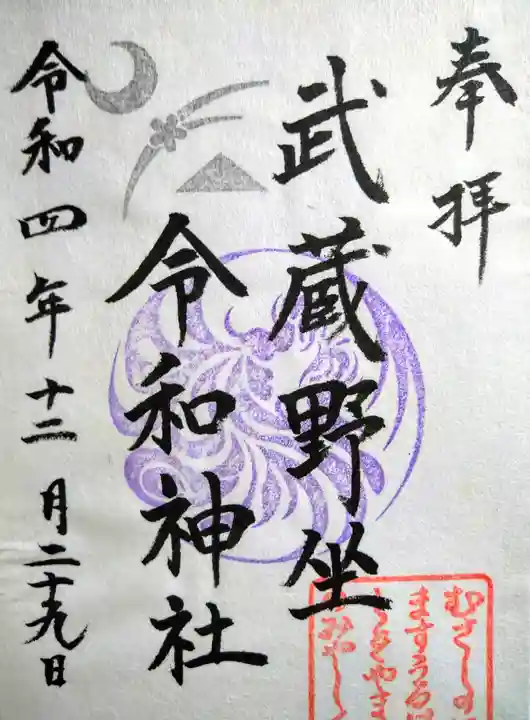 奉拝
武蔵野坐
令和神社
令和四年十二月二十九日
むさしの
ますうる